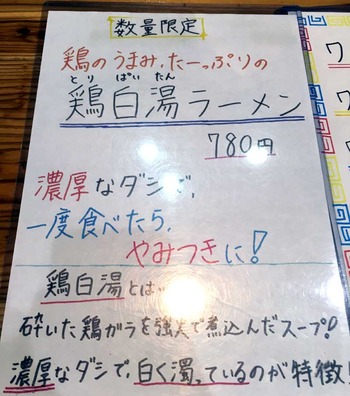 数量限定
鶏のうまみ、たーっぷりの
とり ぱい たん
鶏白湯ラーメン
780円
濃厚なダシで、
一度食べたら、
やみつきに!
鶏白湯とは…
砕いた鶏ガラを強火で煮込んだスープ!
濃厚なダシで、白く濁っているのが特徴!
ワ